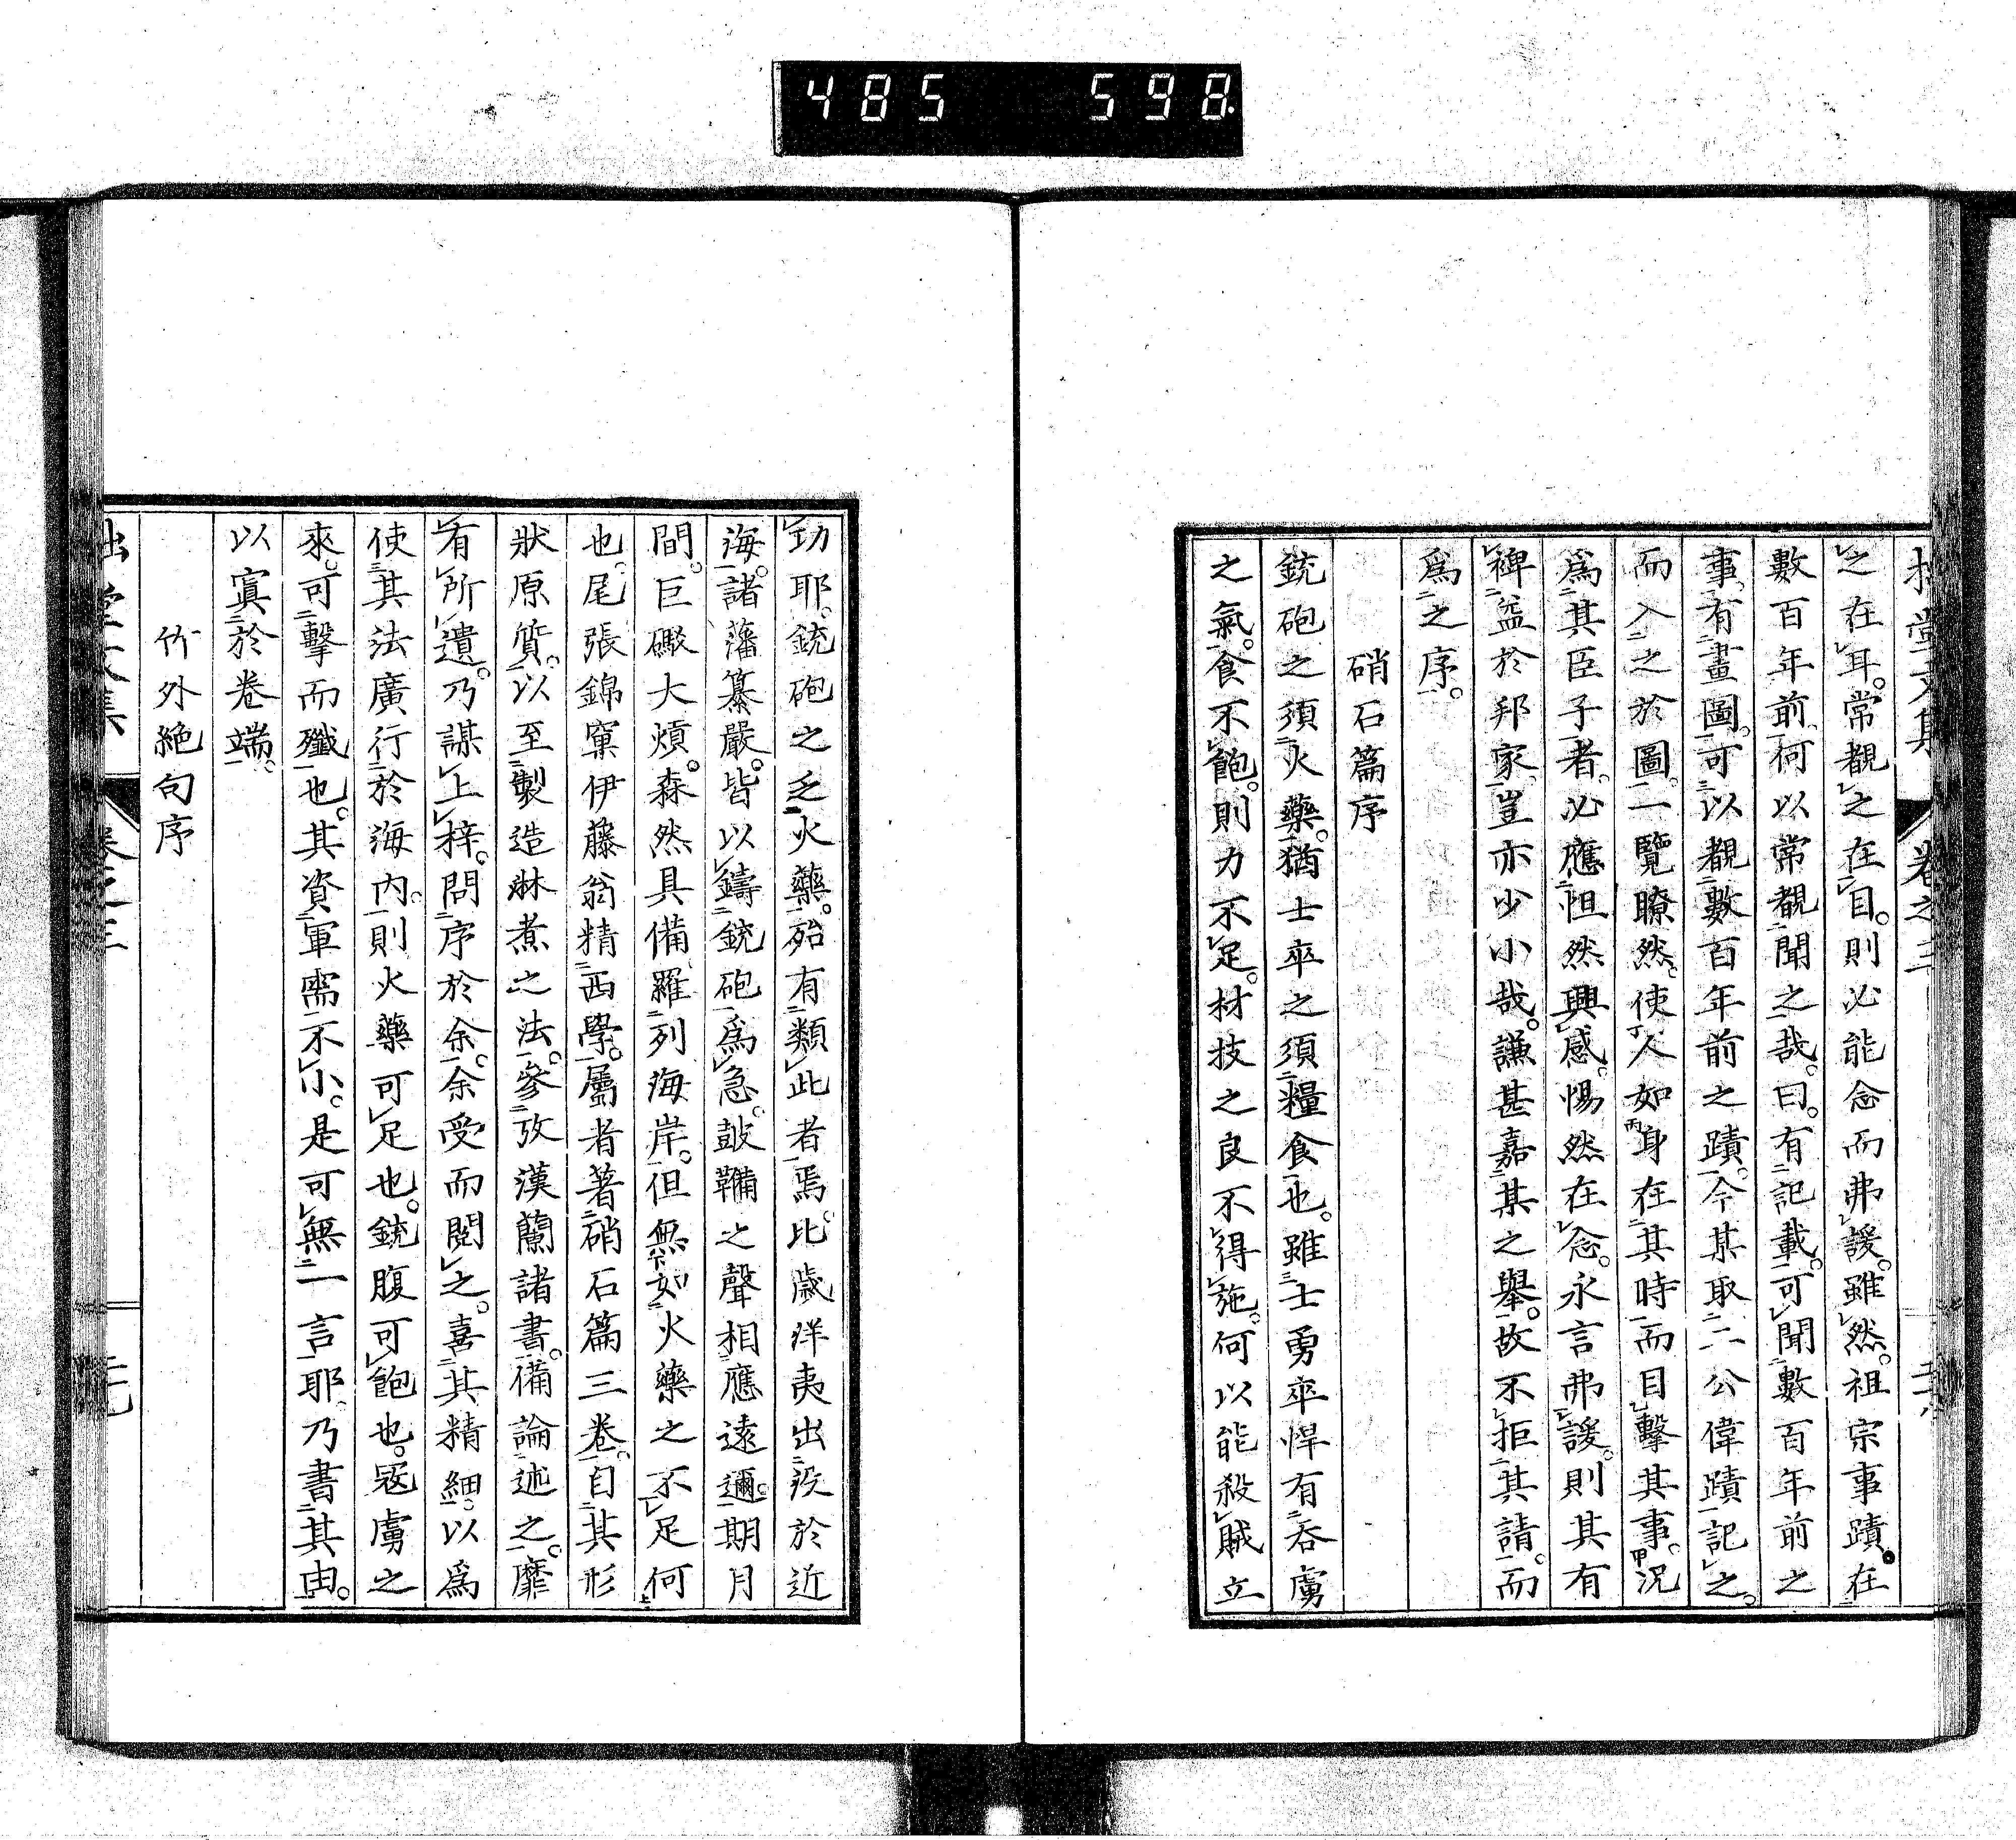 485 598
拙堂文集 卷之三
之在耳常覩之在目。則必能念而弗諼。雖然。祖宗事蹟。在
數百年前、何以常覩聞之哉。曰。有記載。可聞數百年前之
事、有畫圖。可以觀數百年前之蹟。今某取二公偉蹟記之。
而入之於圖。一覽瞭然。使人如身在其時而目擊其事。況
爲其臣子者。必應怛然興感。惕然在念。永言弗諼。則其有
裨益於邦家、豈亦少小哉。謙甚嘉其之舉。故不拒其請。而
爲之序。
硝石篇序
銃砲之須火藥。猶士卒之須糧食也。雖士勇卒悍有吞虜
之氣。食不飽。則力不足。材技之良不得施。何以能殺賊立
功耶。銃砲之乏火藥。殆有類此者焉。比歲洋夷出沒於近
海。諸藩纂嚴。皆以鑄銃砲爲急。鼓鞴之聲相應遠邇。期月
間。巨礮大熕。森然具備羅列海岸。但無如火藥之不足何
也。尾張錦窠伊藤翁精西學。屬者著硝石篇三卷。自其形
狀原質。以至製造淋煮之法。參攷漢蘭諸書。備論述之。靡
有所遺。乃謀上梓。問序於余。余受而閱之。喜其精細。以爲
使其法廣行於海內。則火藥可足也。銃腹可飽也。寇虜之
來。可擊而殲也。其資軍需不小。是可無一言耶。乃書其由。
以寘於卷端。
竹外絶句序
拙堂文集 卷之三